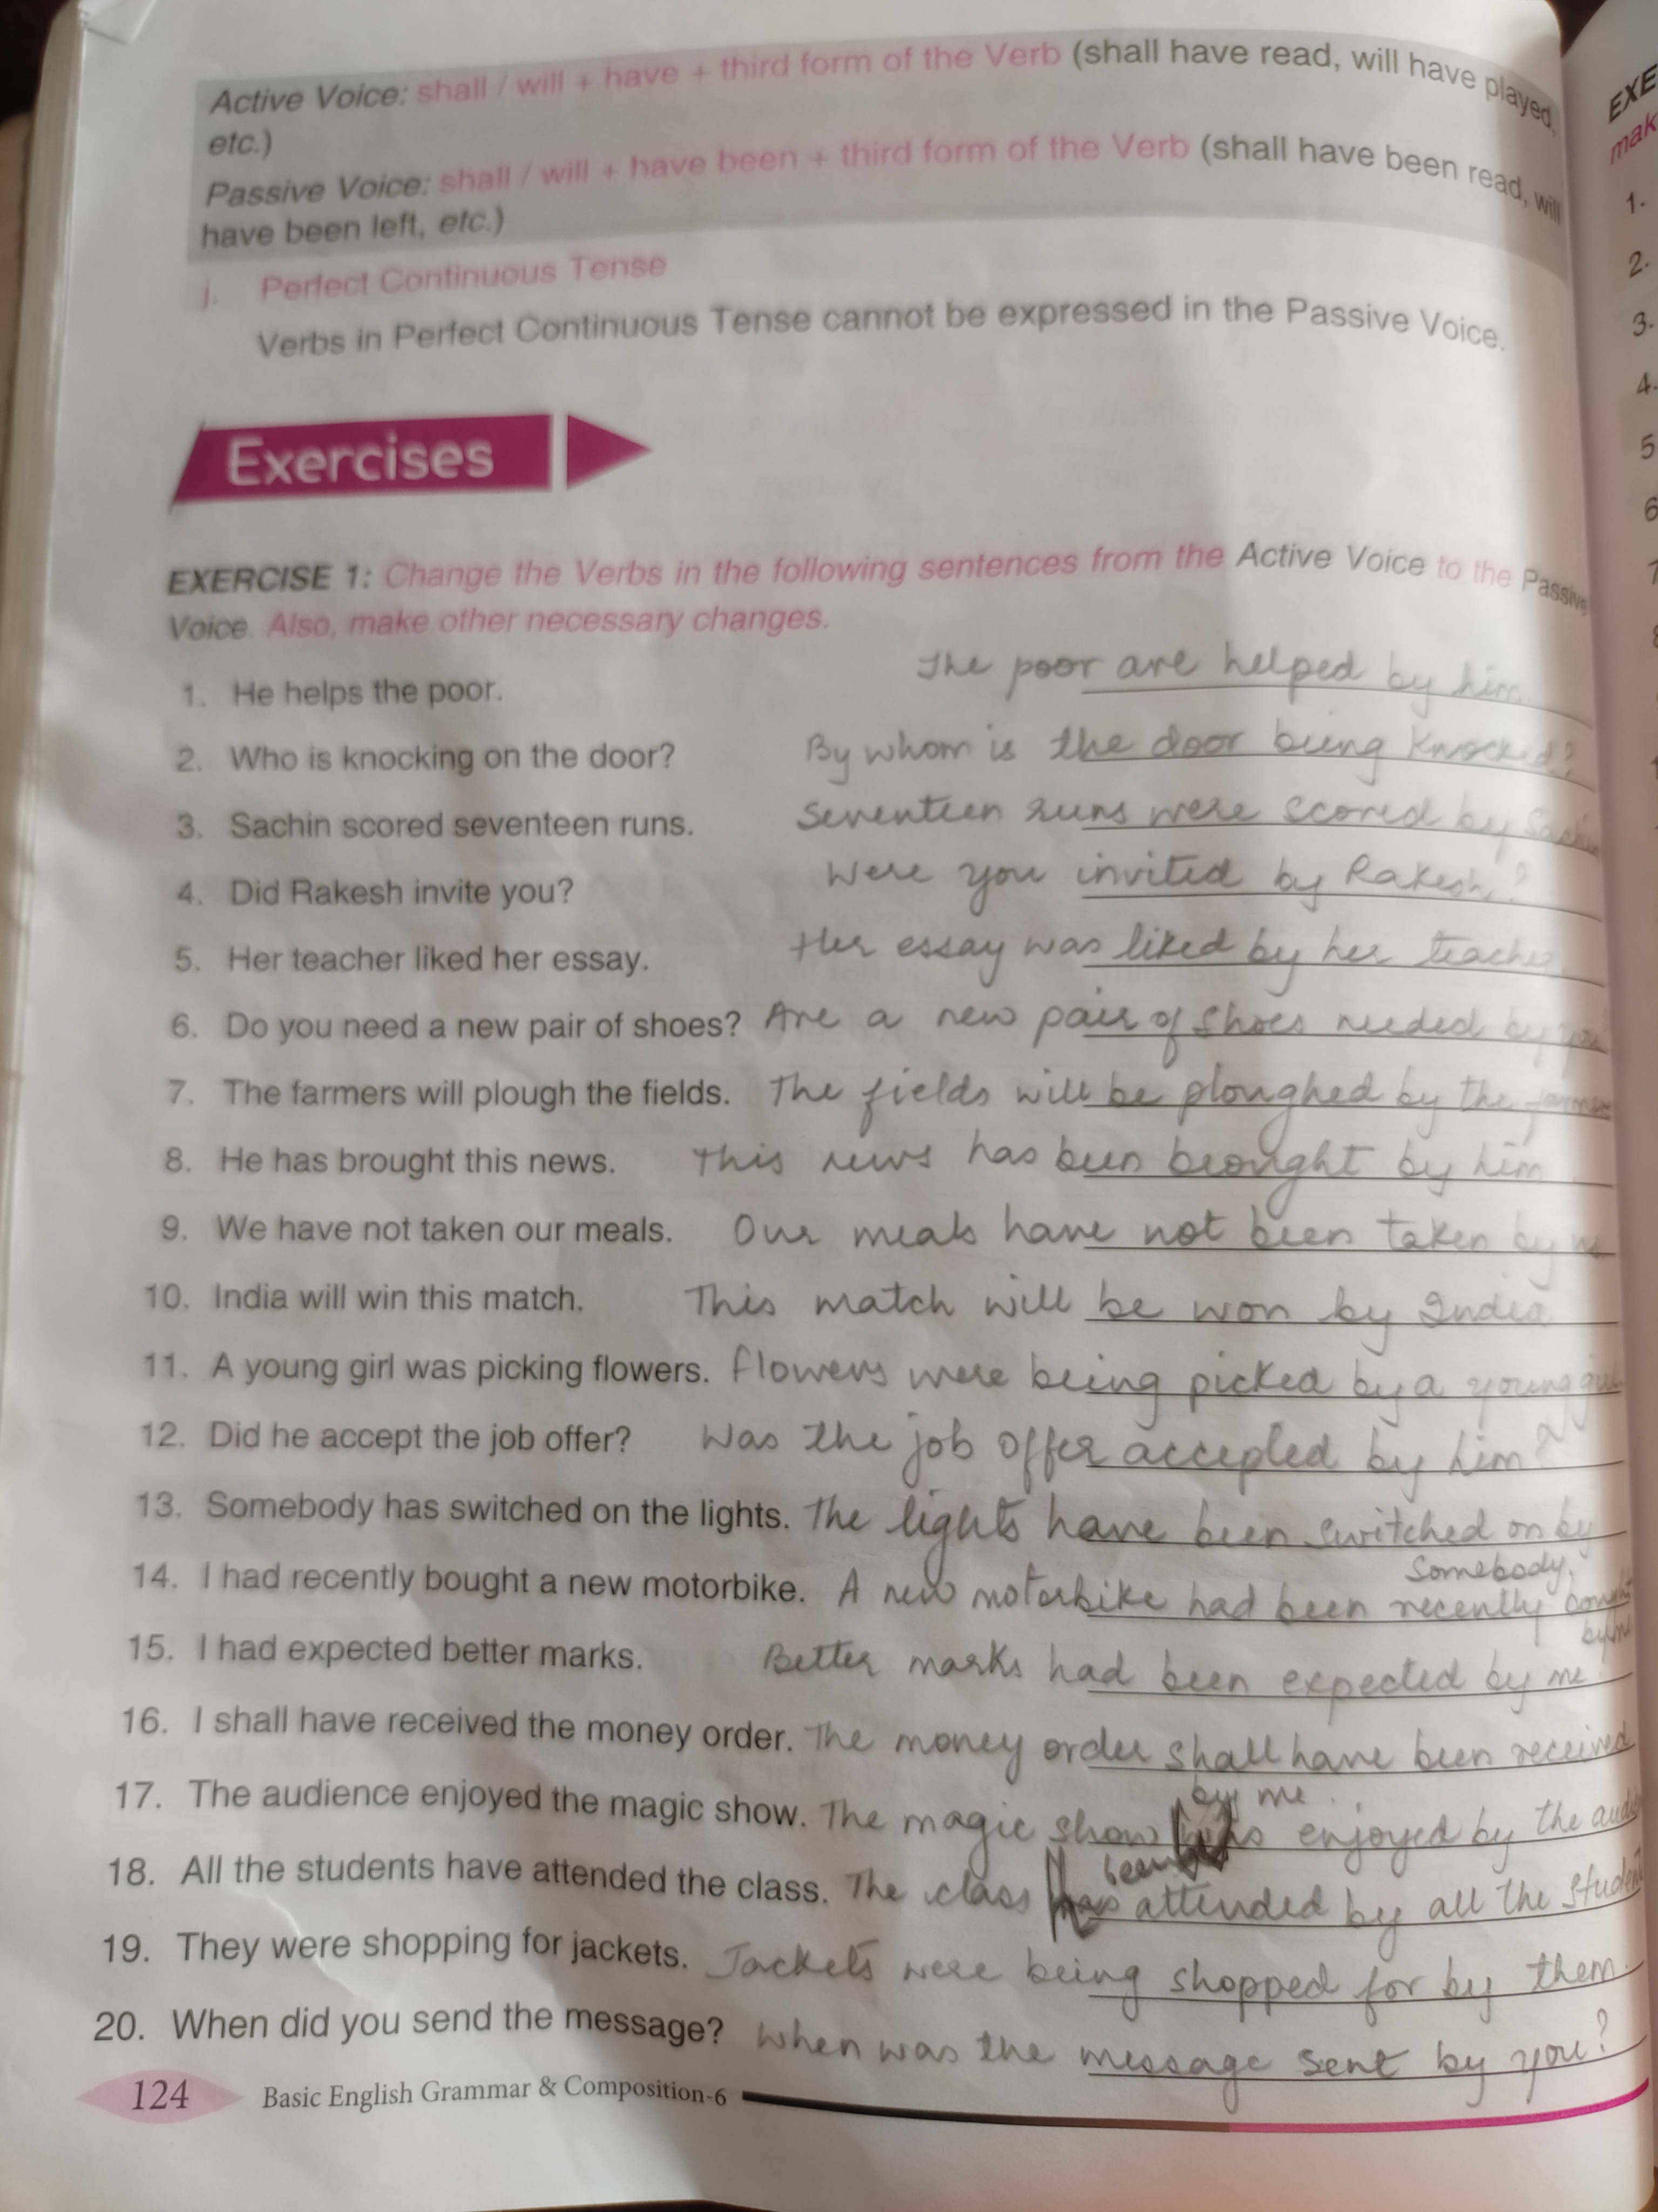 Active Voice: shall / will + have + third form of the Verb (shall have read, will have played,
etc.)
Passive Voice: shall / will + have been + third form of the Verb (shall have been read, will
have been left, etc.)
j. Perfect Continuous Tense
Verbs in Perfect Continuous Tense cannot be expressed in the Passive Voice.
Exercises
EXERCISE 1: Change the Verbs in the following sentences from the Active Voice to the Passive
Voice. Also, make other necessary changes.
1. He helps the poor. The poor are helped by him.
2. Who is knocking on the door? By whom is the door being knocked?
3. Sachin scored seventeen runs. Seventeen runs were scored by Sachin
4. Did Rakesh invite you? Were you invited by Rakesh?
5. Her teacher liked her essay. Her essay was liked by her teacher
6. Do you need a new pair of shoes? Are a new pair of shoes needed by you
7. The farmers will plough the fields. The fields will be ploughed by the farmers
8. He has brought this news. This news has been brought by him
9. We have not taken our meals. Our meals have not been taken by us
10. India will win this match. This match will be won by India
11. A young girl was picking flowers. Flowers were being picked by a young girl
12. Did he accept the job offer? Was the job offer accepted by him?
13. Somebody has switched on the lights. The lights have been switched on by
somebody.
14. I had recently bought a new motorbike. A new motorbike had been recently bought
by me
15. I had expected better marks. Better marks had been expected by me.
16. I shall have received the money order. The money order shall have been received
by me.
17. The audience enjoyed the magic show. The magic show was enjoyed by the
been
18. All the students have attended the class. The class has attended by all the
19. They were shopping for jackets. Jackets were being shopped for by them.
20. When did you send the message? When was the message sent by you?
124 Basic English Grammar & Composition-6
EXE
mak
1.
2.
3.
4.
5
6
7